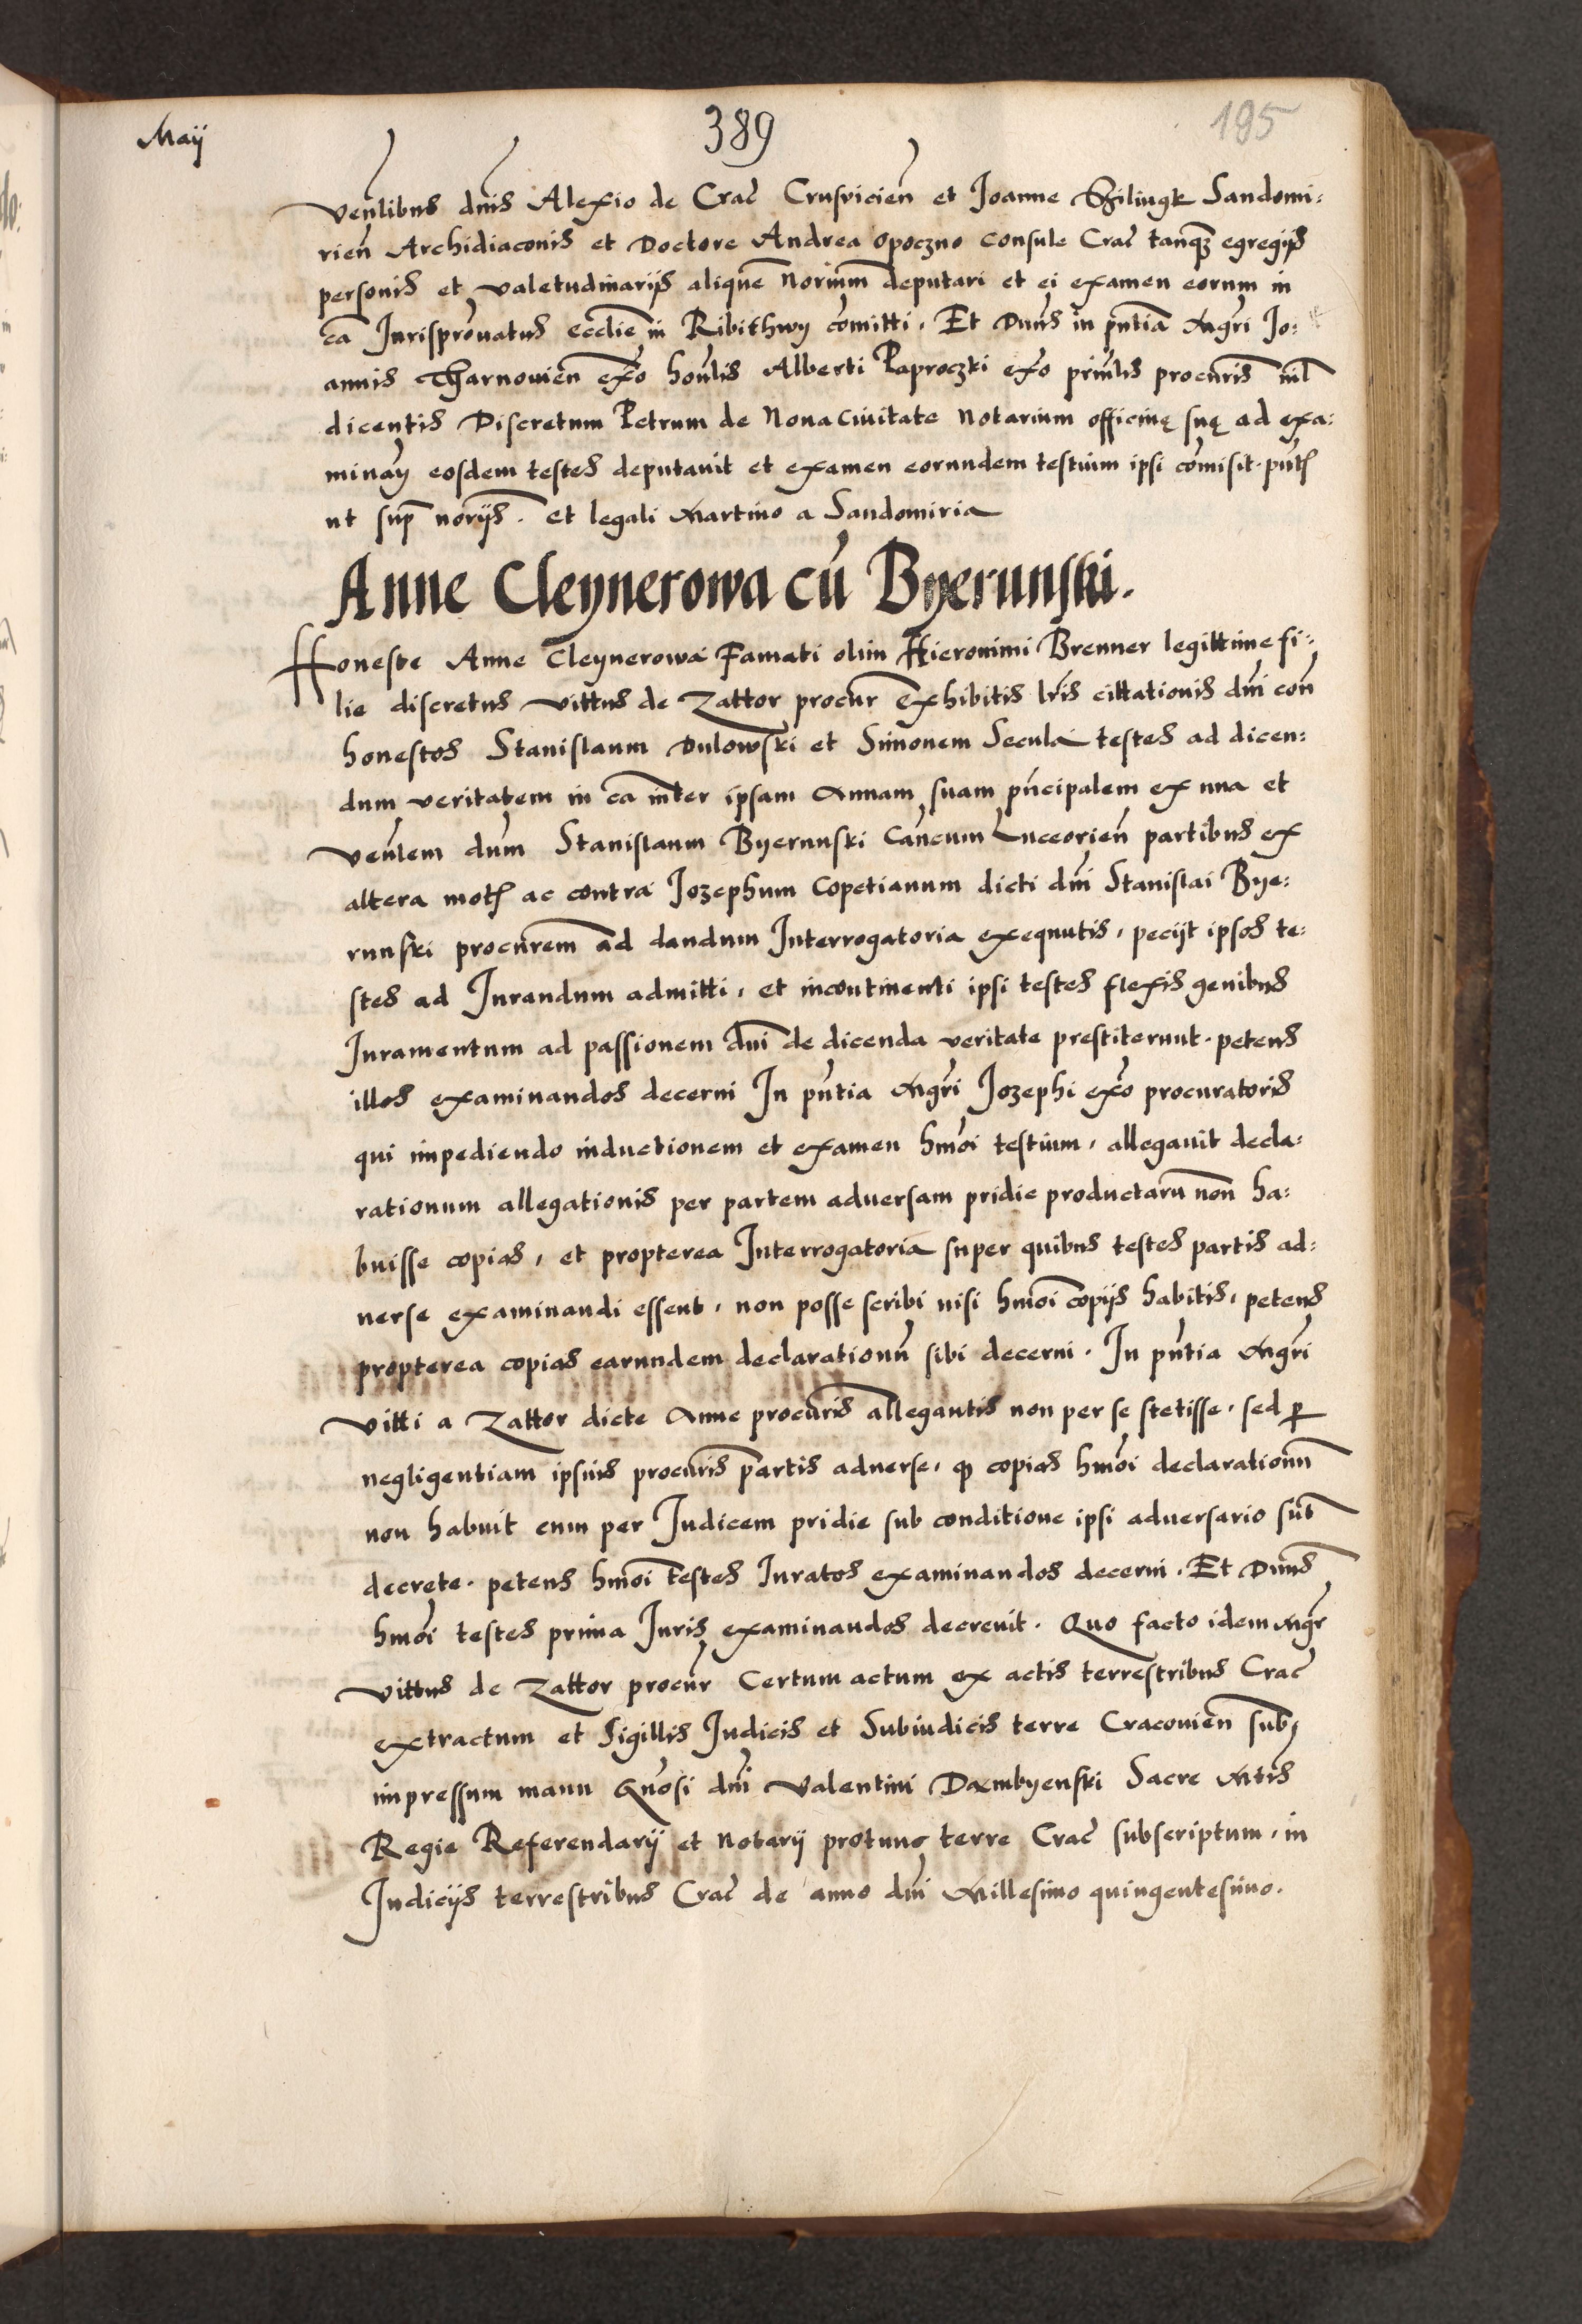 Maij
389
195
venlibus dnis Alexio de Crac Crusvicien et Joanne Szilingk Sandomi:
rien Archidiaconis et Doctore Andrea Opoczno consule Crac tanqz egregijs
personis et valetudinarijs aliquem norium deputari et ei examen eorum in
ca Jurispronatus ecclie in Ribithwy comitti. Et Dnus in pntia Mgri Jo:
annis Tharnovien exo honlis Alberti Paproczki exo prinlis procuris nil
dicentis Discretum Petrum de Nona Civitate Notarium officinę suę ad exa:
minan eosdem testes deputavit et examen eorundem testium ipsi comisit. pntz
ut sup norijs. et legali Martino a Sandomiria
Anne Cleynerowa cu Byerunski.
Honeste Anne Cleynerowa Famati olim Hieronimi Brenner legittime fi:
lie discretus Vittus de Zattor procur exhibitis lris cittationis dni con
honestos Stanislaum Dulowski et Simonem Secula testes ad dicen:
dum veritatem in ca inter ipsam Annam suam pncipalem ex una et
venlem dnm Stanislaum Byerunski Cancum Luceorien partibus ex
altera motz ac contra Jozephum Copetianum dicti dni Stanislai Bye:
runski procurem ad dandum Interrogatoria exequutis, pecijt ipsos te:
stes ad Jurandum admitti, et incontinenti ipsi testes flexis genibus
Juramentum ad passionem dni de dicenda veritate prestiterunt. petens
illos examinandos decerni In pntia Mgri Jozephi exo procuratoris
qui impediendo inductionem et examen hmoi testium, allegavit decla:
rationum allegationis per partem adversam pridie productaru non ha:
buisse copias, et propterea Interrogatoria super quibus testes partis ad:
verse examinandi essent, non posse scribi nisi hmoi copijs habitis, petens
propterea copias earundem declarationu sibi decerni. In pntia Mgri
Vitti a Zattor dicte Anne procuris allegantis non per se stetisse, sed p
negligentiam ipsius procuris partis adverse, q copias hmoi declarationu
non habuit cum per Judicem pridie sub conditione ipsi adversario sunt
decrete. petens hmoi testes Juratos examinandos decerni. Et Dnus
hmoi testes prima Juris examinandos decrevit. Quo facto idem Mgr
Vittus de Zattor procur Certum actum ex actis terrestribus Crac
extractum et Sigillis Judicis et Subiudicis terre Cracovien sub
impressum manu Gnosi dni Valentini Dambyenski Sacre Mtis
Regie Referendarij et Notarij protunc terre Crac subscriptum, in
Judicijs terrestribus Crac de anno dni Millesimo quingentesimo.